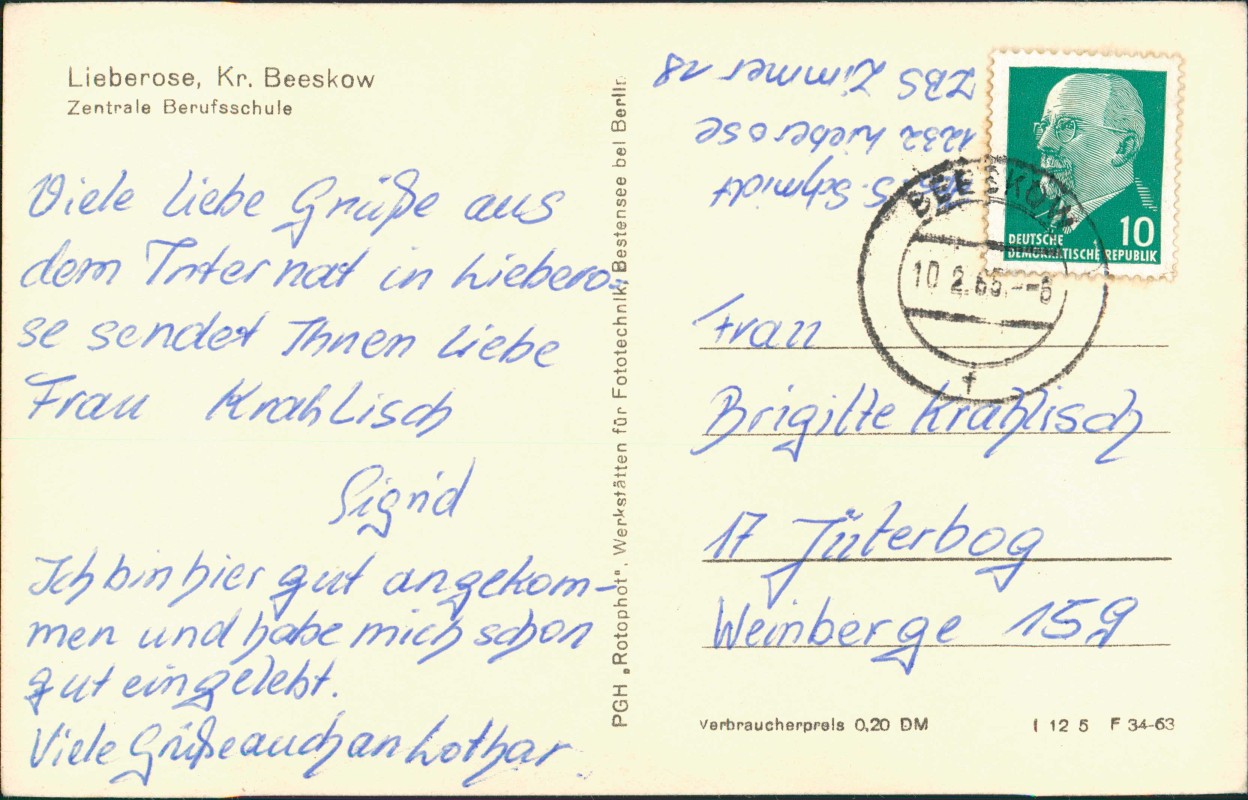 Lieberose, Kr. Beeskow
Zentrale Berufsschule
Viele liebe Grüße aus
dem Internat in Liebero-
se sendet Ihnen liebe
Frau Krahlisch
Sigrid
Ich bin hier gut angekom-
men und habe mich schon
gut eingelebt.
Viele Grüße auch an Lothar.
PGH „Rotophot“, Werkstätten für Fototechnik, Bestensee bei Berlin
S. Schmidt
1232 Lieberose
ZBS Zimmer 18
10
DEUTSCHE
DEMOKRATISCHE REPUBLIK
BEESKOW
10.2.65.--6
f
Frau
Brigitte Krahlisch
17 Jüterbog
Weinberge 159
Verbraucherpreis 0,20 DM
I 12 5 F 34-63